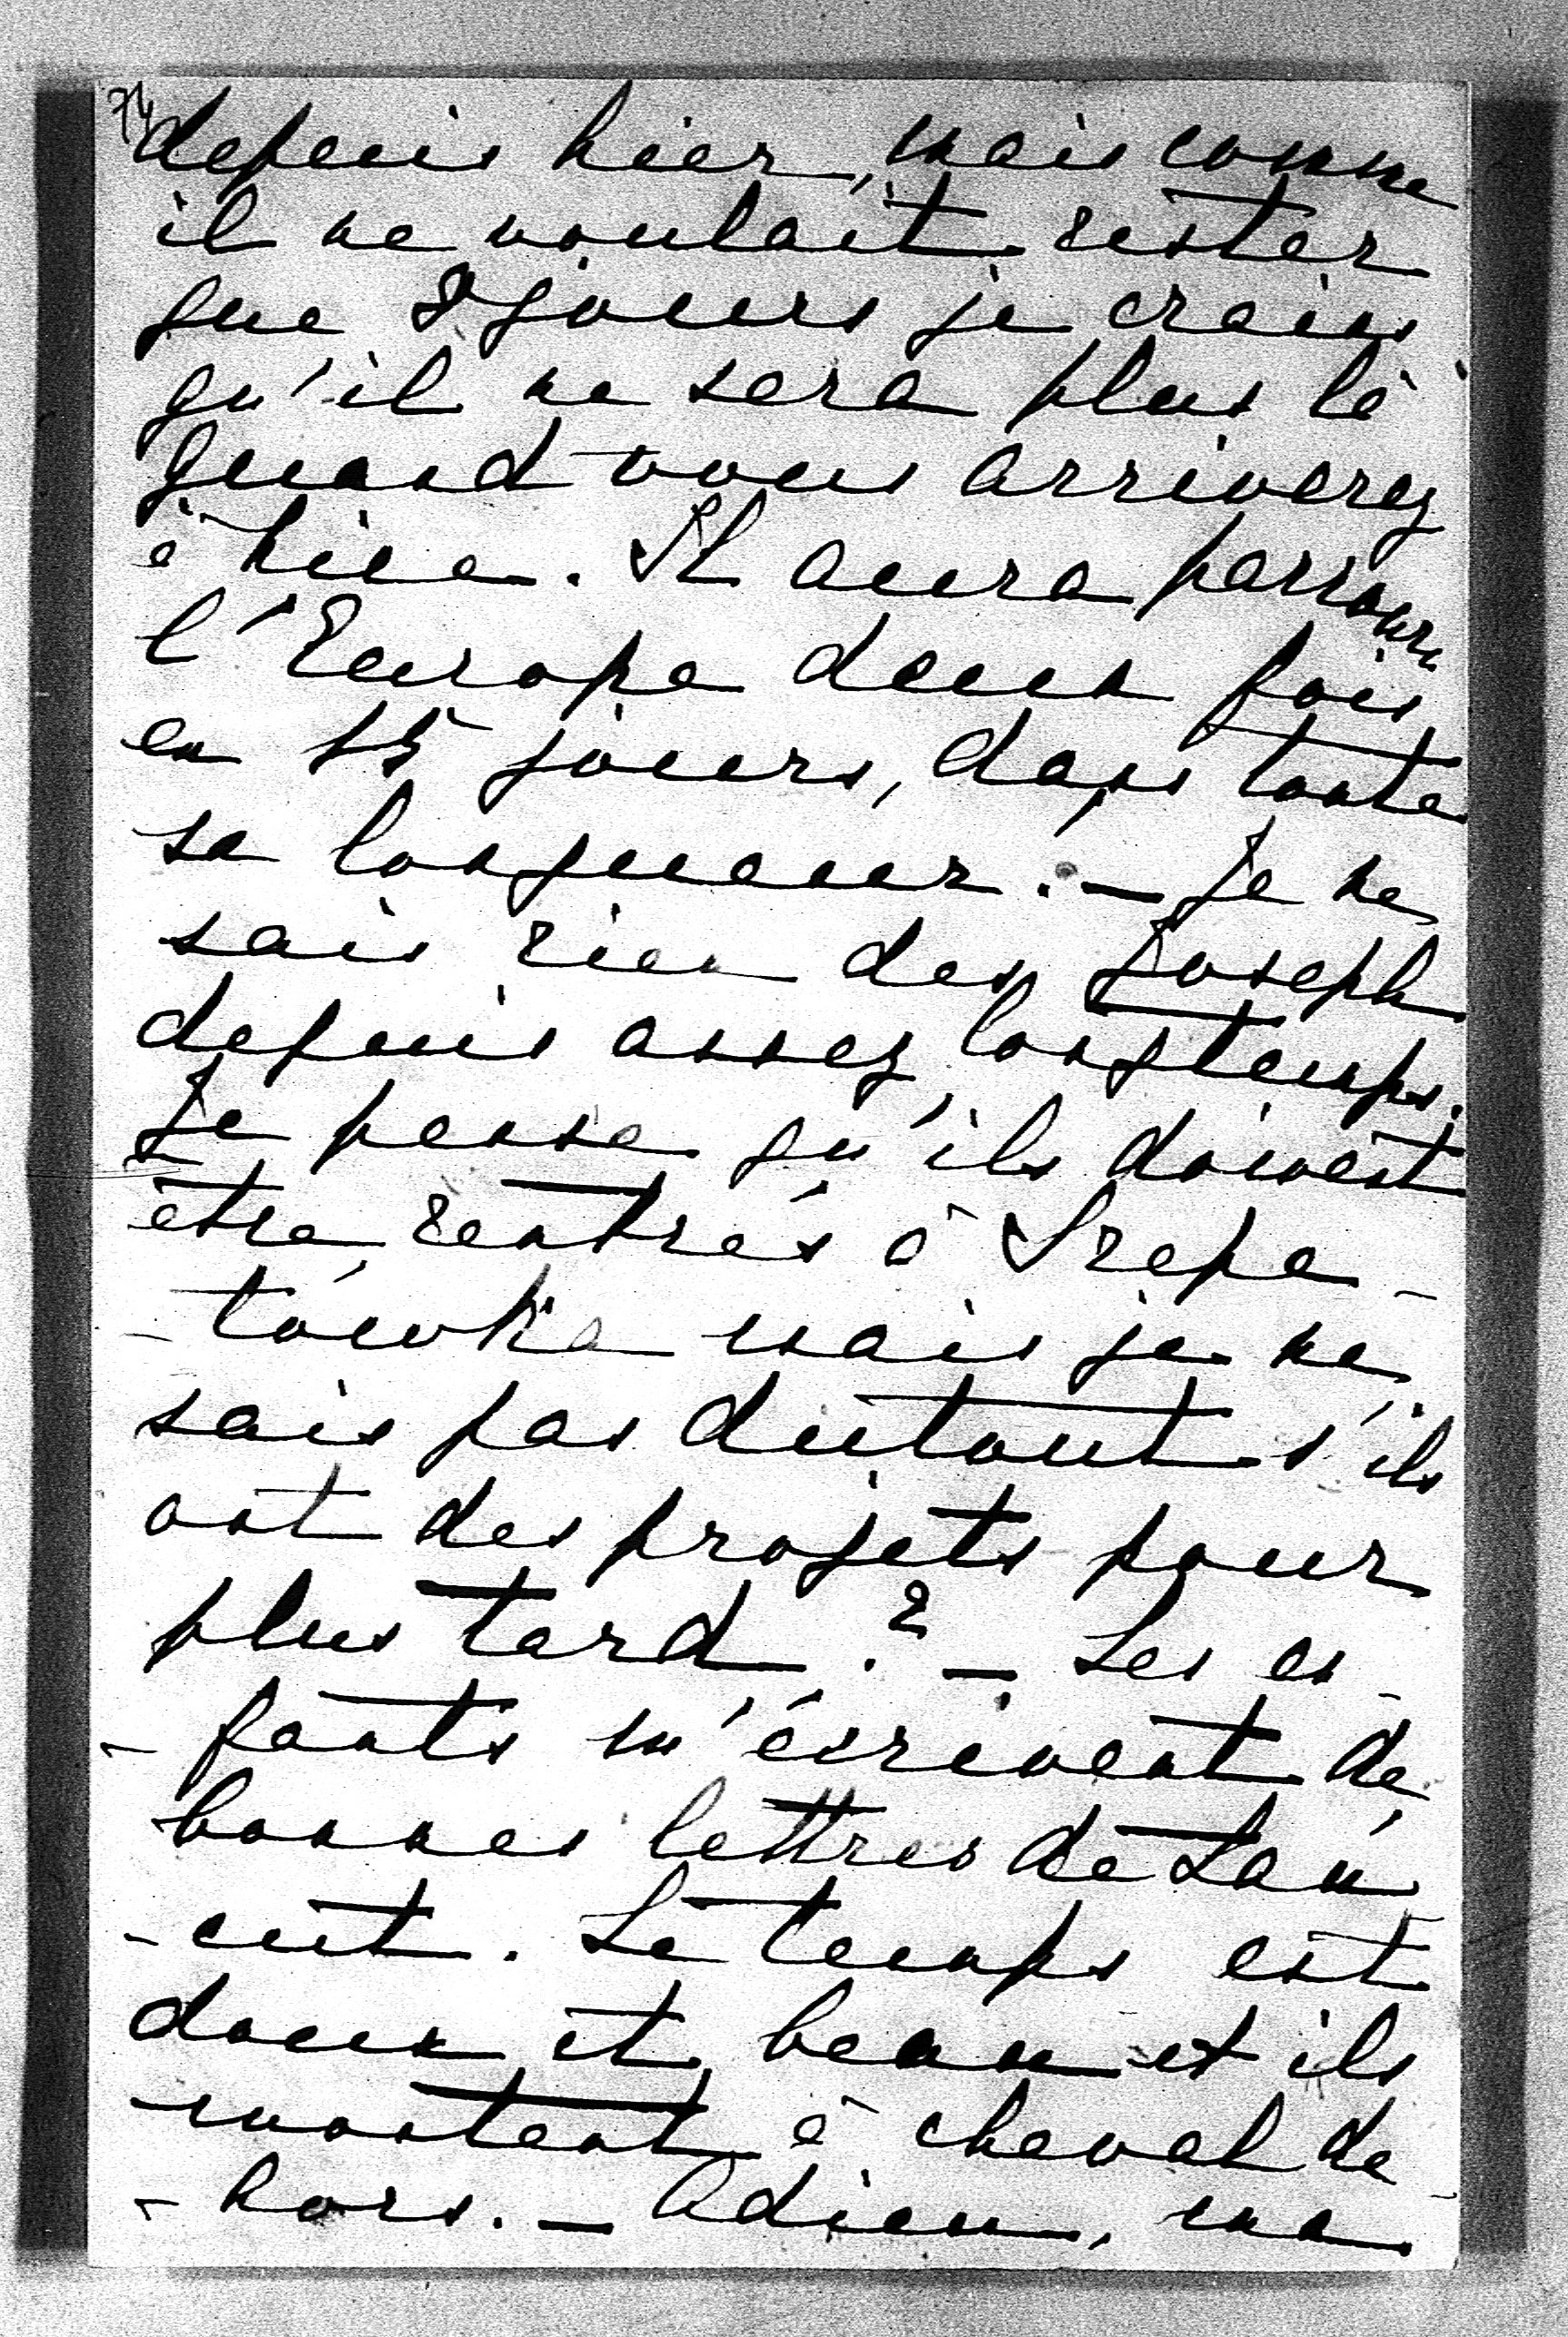 74
depuis hier, mais comme
il ne voulait rester
que 8 jours je crains
qu'il ne sera plus là
quand vous arriverez
à Nice. Il aura parcouru
l'Europe deux fois
en 15 jours, dans toute
sa longueur. — Je ne
sais rien des Joseph
depuis assez longtemps.
Je pense qu'ils doivent
être rentrés à Szepe-
-tówka mais je ne
sais pas dutout s'ils
ont des projets pour
plus tard.? — Les en-
-fants m'écrivent de
bonnes lettres de Lań
-cut. Le temps est
doux et beau et ils
montent à cheval de-
-hors. — Adieu, ma